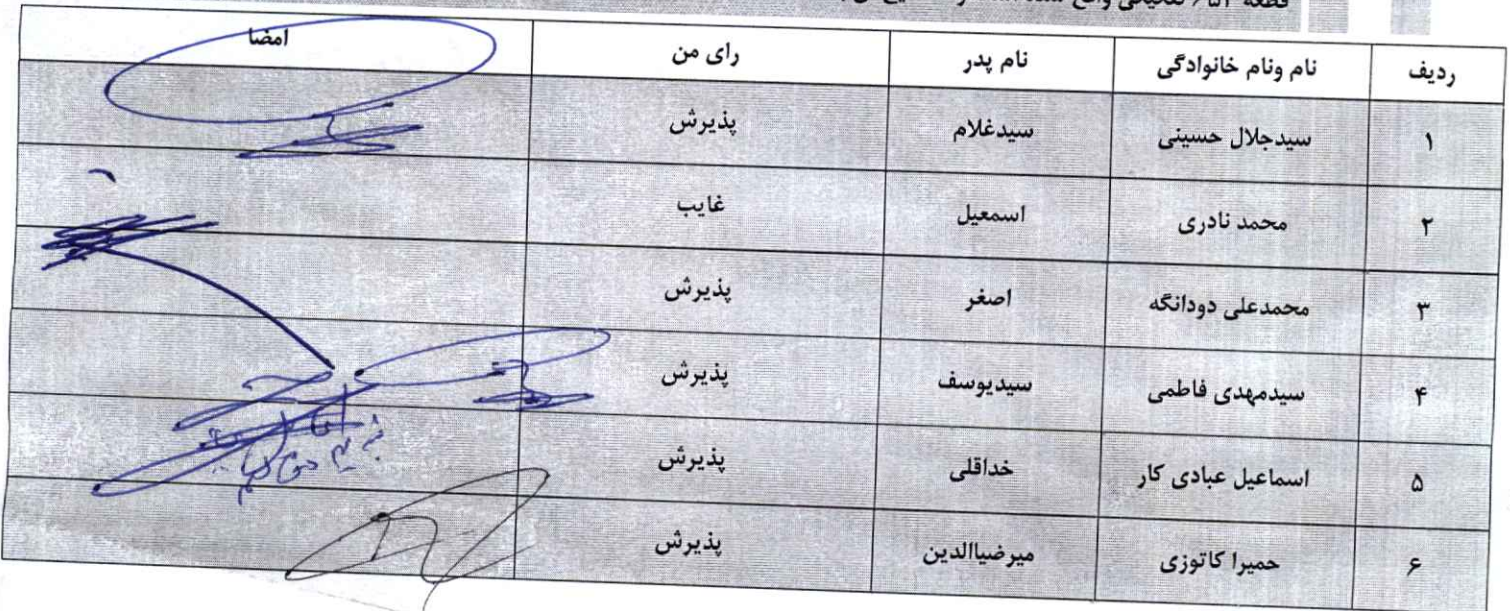 قطعه
ردیف نام ونام خانوادگی نام پدر رای من امضا
۱ سیدجلال حسینی سیدغلام پذیرش
۲ محمد نادری اسمعیل غایب
۳ محمدعلی دودانگه اصغر پذیرش
۴ سیدمهدی فاطمی سیدیوسف پذیرش
۵ اسماعیل عبادی کار خداقلی پذیرش
۶ حمیرا کاتوزی میرضیاالدین پذیرش